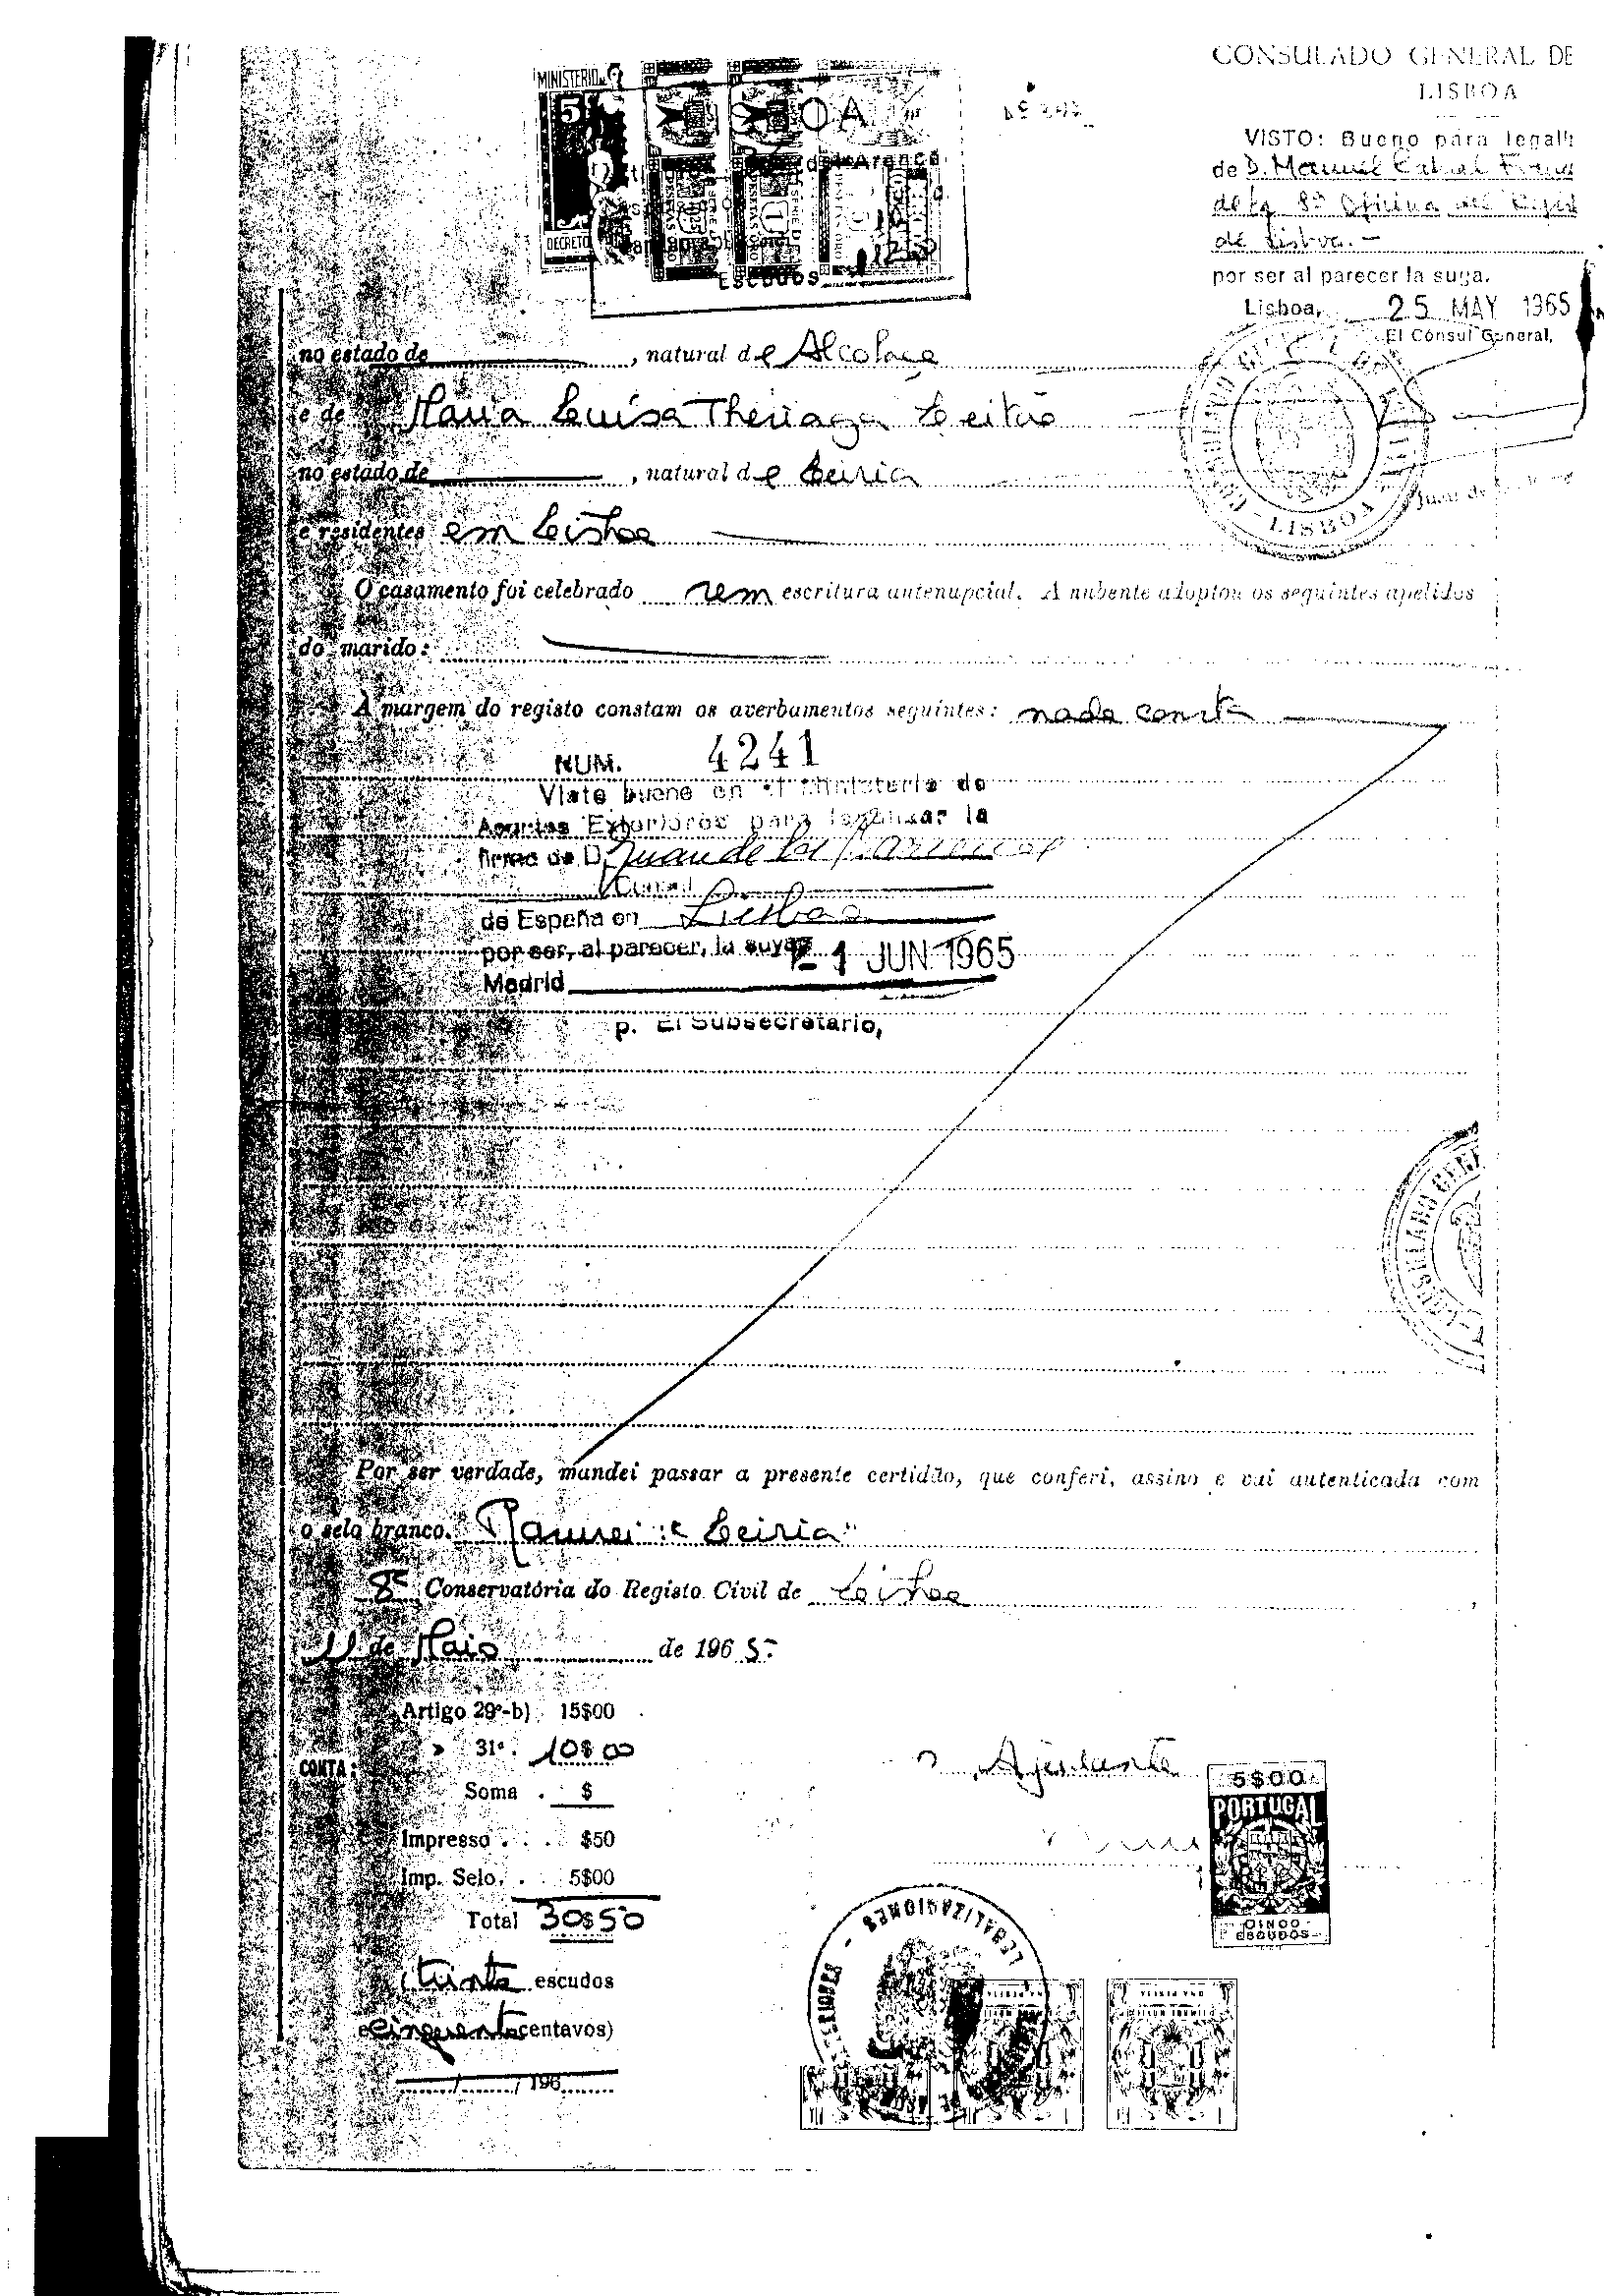 CONSULADO GENERAL DE
LISBOA
VISTO: Bueno para legali
de D. Manuel Cabral
de la 8ª Oficina del
de Lisboa.-
por ser al parecer la suya.
Lisboa, 25 MAY 1965
El Cónsul General,
CONSULADO GENERAL
- LISBOA -
Juan de
MINISTERIO
5
DECRETO
Escudos
no estado de , natural de Alcobaça
e de Maria Luisa Theriaga Leitão
no estado de , natural de Leiria
e residentes em Lisboa
O casamento foi celebrado sem escritura antenupcial. A nubente adoptou os seguintes apelidos
do marido:
À margem do registo constam os averbamentos seguintes: nada consta
NUM. 4241
Visto bueno en el Ministerio de
Asuntos Exteriores para legalizar la
firma de D. Juan de las
Consul
de España en Lisboa
por ser, al parecer, la suya
1 JUN 1965
Madrid
p. El Subsecretario,
CONSULADO GENE
Por ser verdade, mandei passar a presente certidão, que conferi, assino e vai autenticada com
o selo branco. "Leiria"
8ª Conservatória do Registo Civil de Lisboa
11 de Maio de 1965.
CONTA:
Artigo 29º-b) 15$00
» 31º. 10$00
Soma . $
Impresso . . . $50
Imp. Selo. . 5$00
Total 30$50
(trinta escudos
e cinquenta centavos)
/ / 196
O Ajudante
5$00
PORTUGAL
CINCO
ESCUDOS
LEGALIZACIONES -
UNA PESETA
UNA PESETA